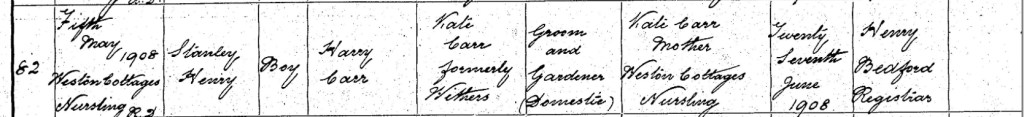 82
Fifth
May 1908
Weston Cottages
Nursling R.D
Stanley
Henry
Boy
Harry
Carr
Kate
Carr
formerly
Withers
Groom
and
Gardener
(Domestic)
Kate Carr
Mother
Weston Cottages
Nursling
Twenty
Seventh
June
1908
Henry
Bedford
Registrar